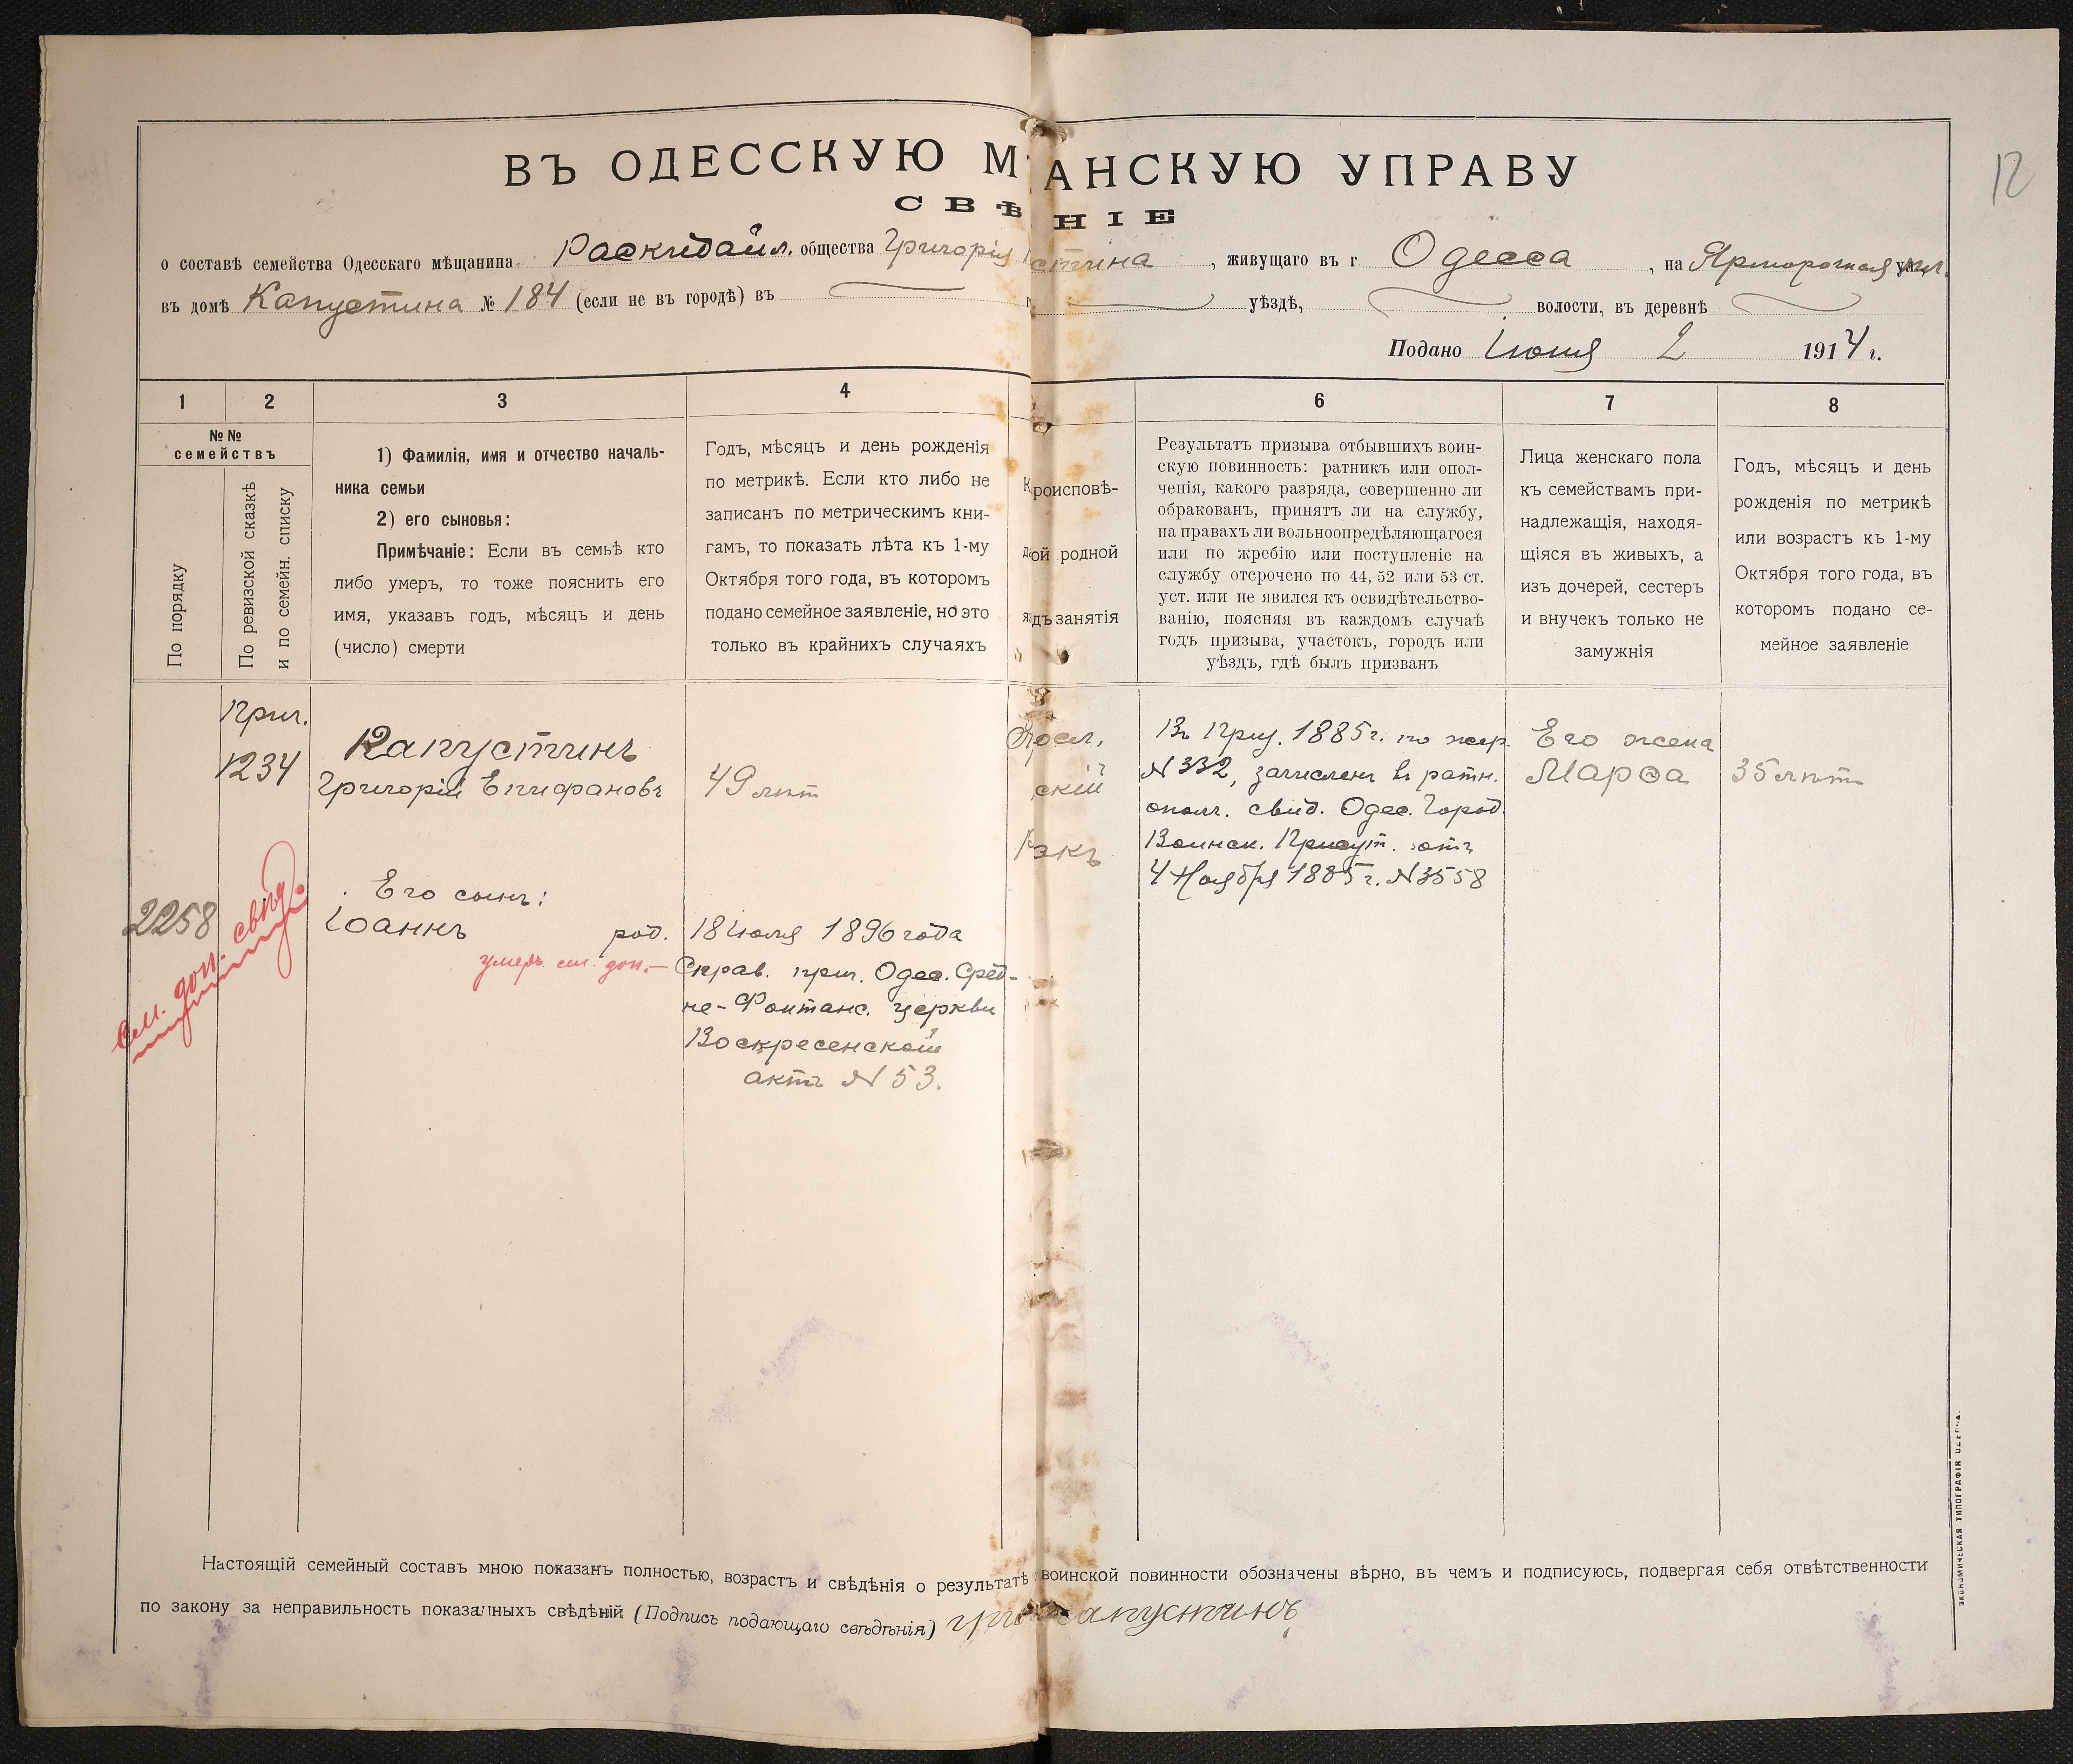 12
ВЪ ОДЕССКУЮ М АНСКУЮ УПРАВУ
СВѢ НІЕ
о составѣ семейства Одесскаго мѣщанина Раскидайл. общества Григорія стина, живущаго въ г Одесса, на Ярморочная ул.
въ домѣ Капустина № 184 (если не въ городѣ) въ уѣздѣ, волости, въ деревнѣ
Подано Іюня 2 1914 г.
1 2 3 4 6 7 8
№№
семействъ
По порядку
По ревизской сказкѣ
и по семейн. списку
1) Фамилія, имя и отчество началь-
ника семьи
2) его сыновья:
Примѣчаніе: Если въ семьѣ кто
либо умеръ, то тоже пояснить его
имя, указавъ годъ, мѣсяцъ и день
(число) смерти
Годъ, мѣсяцъ и день рожденія
по метрикѣ. Если кто либо не
записанъ по метрическимъ кни-
гамъ, то показать лѣта къ 1-му
Октября того года, въ которомъ
подано семейное заявленіе, но это
только въ крайнихъ случаяхъ
роисповѣ-
ой родной
дъ занятія
Результатъ призыва отбывшихъ воин-
скую повинность: ратникъ или опол-
ченія, какого разряда, совершенно ли
обракованъ, принятъ ли на службу,
на правахъ ли вольноопредѣляющагося
или по жребію или поступленіе на
службу отсрочено по 44, 52 или 53 ст.
уст. или не явился къ освидѣтельство-
ванію, поясняя въ каждомъ случаѣ
годъ призыва, участокъ, городъ или
уѣздъ, гдѣ былъ призванъ
Лица женскаго пола
къ семействамъ при-
надлежащія, находя-
щіяся въ живыхъ, а
изъ дочерей, сестеръ
и внучекъ только не
замужнія
Годъ, мѣсяцъ и день
рожденія по метрикѣ
или возрастъ къ 1-му
Октября того года, въ
которомъ подано се-
мейное заявленіе
1234
Капустинъ
Григорій Епифановъ
49 лѣт
скій
Въ Приз. 1885 г. по жер.
N 332, зачисленъ въ ратн.
ополч. свид. Одес. Город.
Воинск. Присут. отъ
4 Ноября 1885 г. N 3558
Его жена
Марѳа
35 лѣтъ
2258
см. доп. свѣд.
Его сынъ:
Іоаннъ род.
умеръ см. доп.
18 Іюля 1896 года
Справ. прич. Одес. Сред-
не-Фонтанс. церкви
Воскресенской
актъ N 53.
Настоящій семейный составъ мною показанъ полностью, возрастъ и свѣдѣнія о результатѣ воинской повинности обозначены вѣрно, въ чемъ и подписуюсь, подвергая себя отвѣтственности
по закону за неправильность показанныхъ свѣдѣній (Подпись подающаго свѣдѣнія) апустинъ
ЭКОНОМИЧЕСКАЯ ТИПОГРАФІЯ